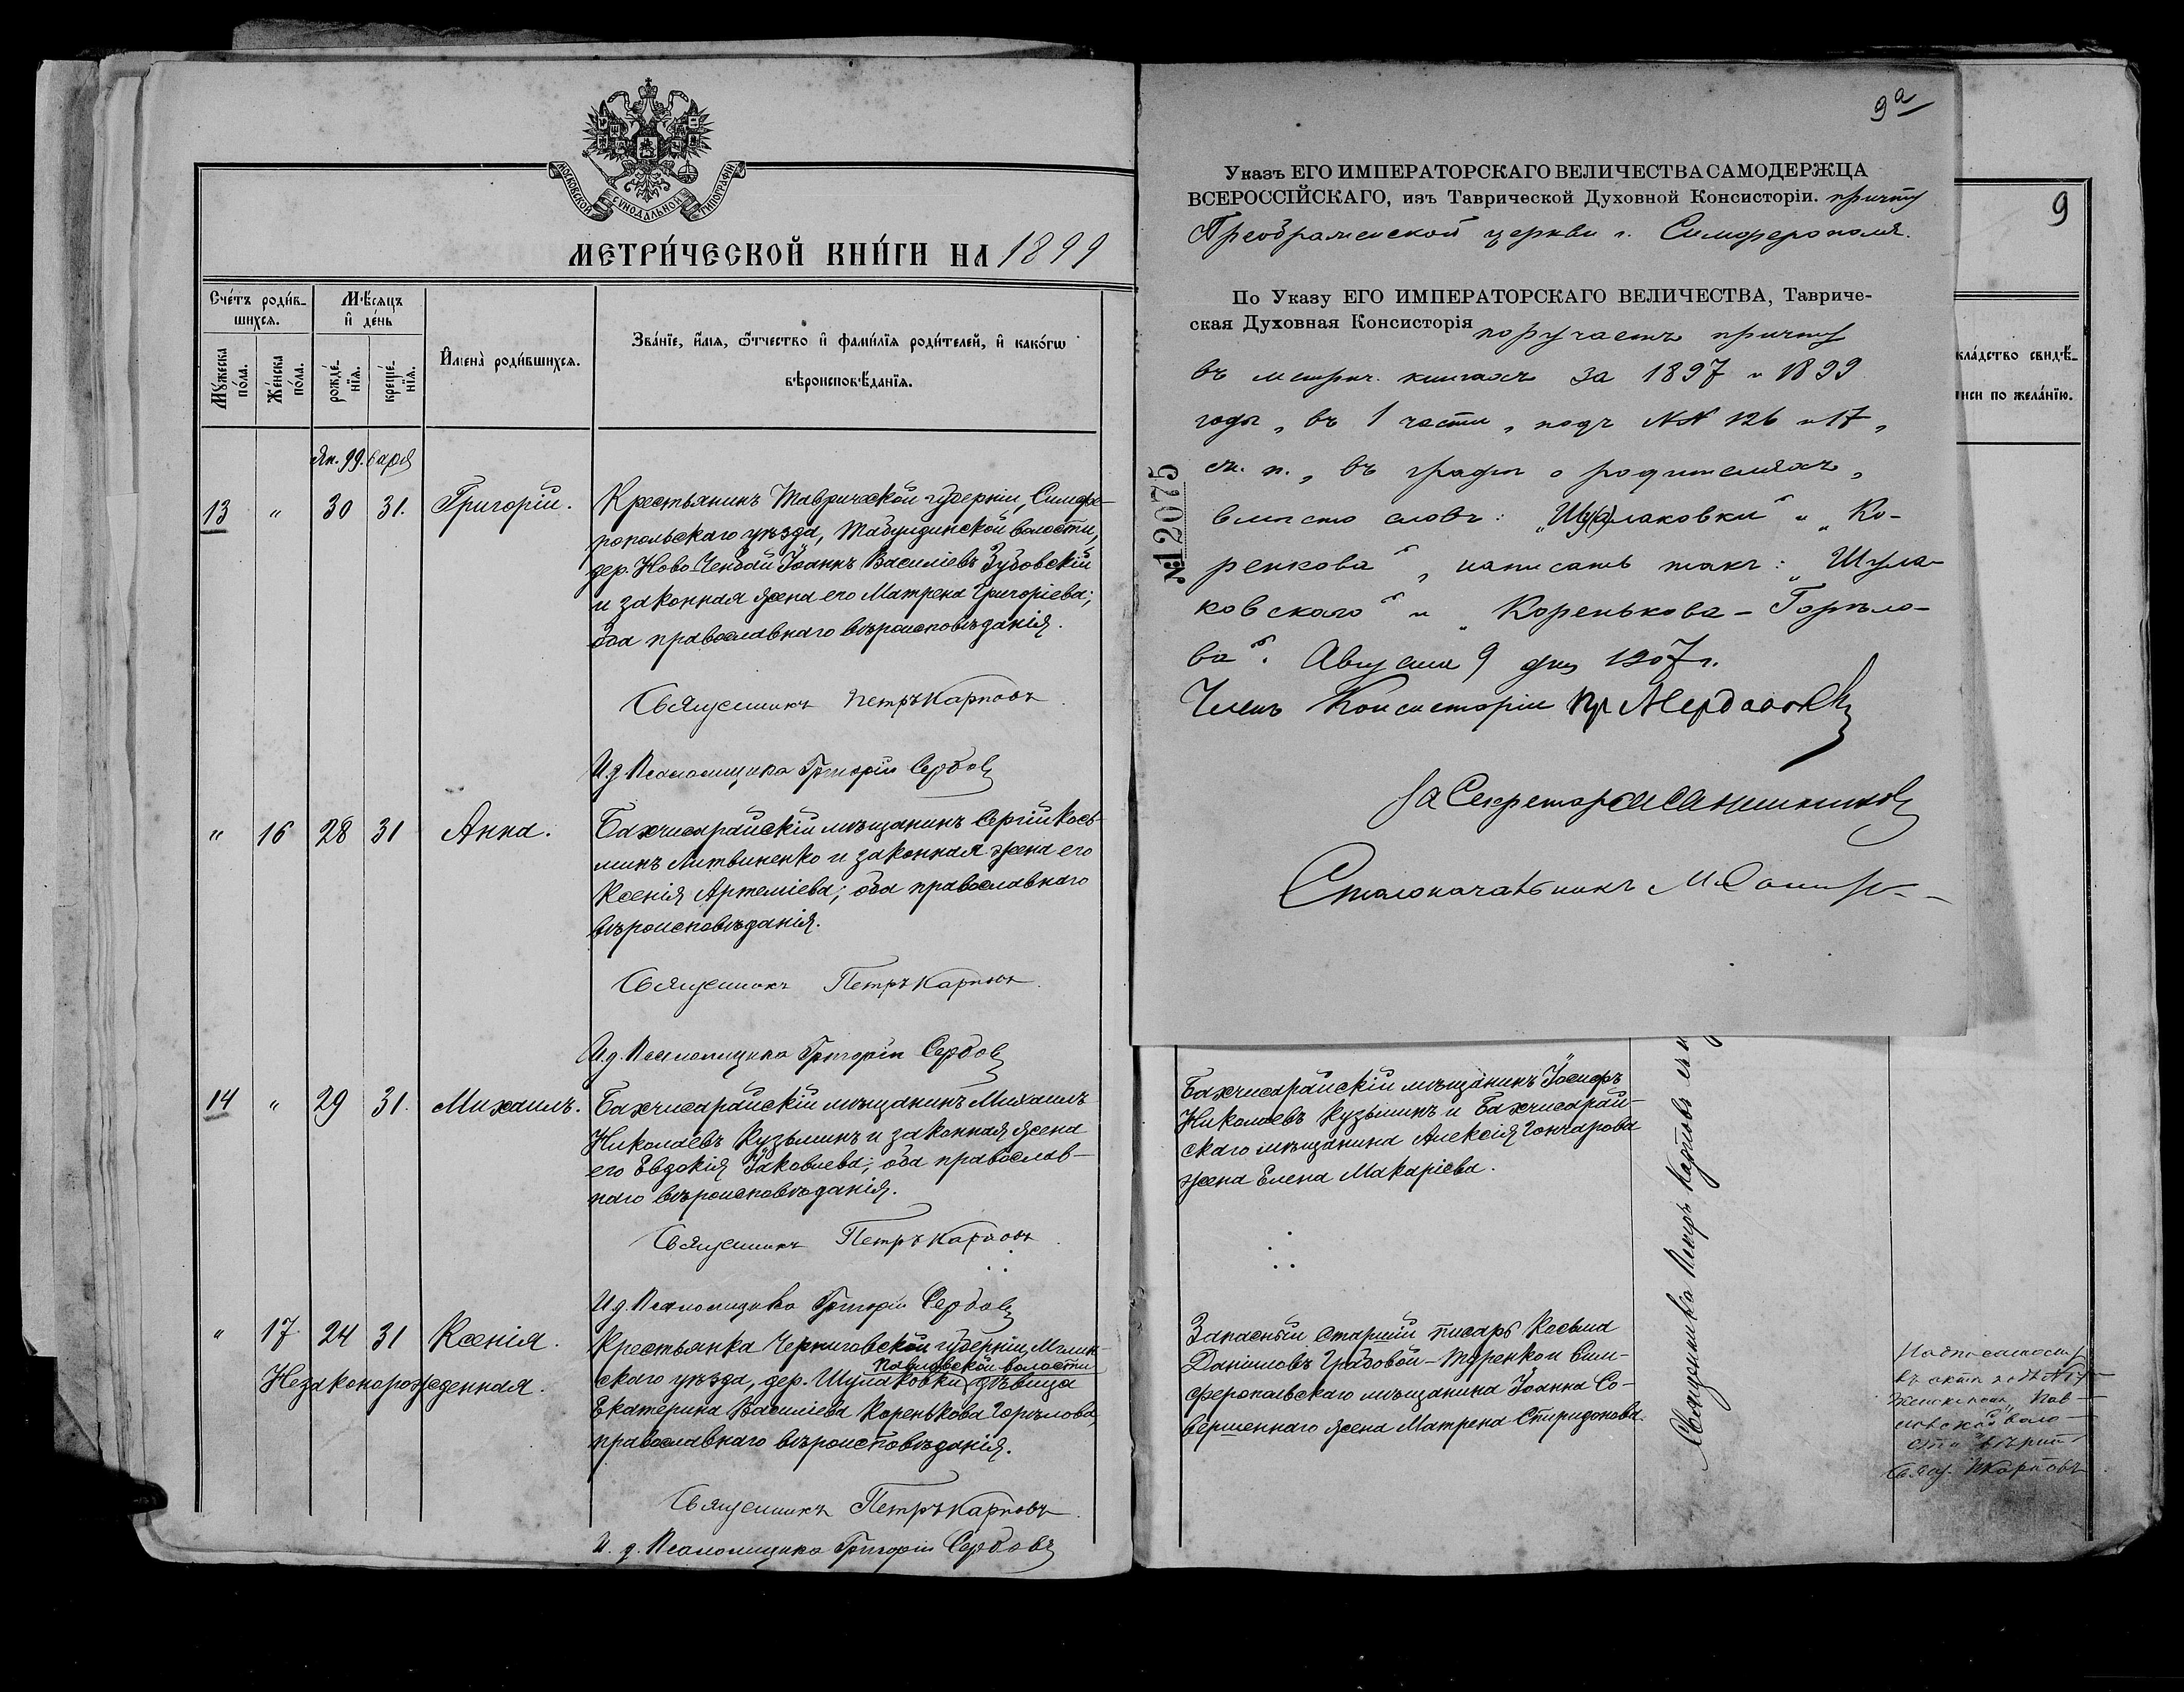 МОСКОВСКОЙ СѴНОДАЛЬНОЙ ТИПОГРАФІИ
МЕТРИ́ЧЕСКОЙ КНИ́ГИ НА 1899
Сче́тъ роди́в-
шихся.
Мѣсяцъ
и҆ де́нь
И҆мена̀ роди́вшихся.
Зва́нїе, и҆́мя, ѻ҆́тчество и҆ фами́лїя роди́телей, и҆ како́гѡ
вѣроисповѣ́данїя.
Мꙋ́жеска
по́ла.
Же́нска
по́ла.
рожде́-
нїя.
креще́-
нїя.
Ян. 99. варя
13 " 30 31. Григорій.
Крестьянинъ Таврической губерніи, Симфе-
ропольскаго уѣзда, Табулдинской волости,
дер. Ново-Ченбай Іоаннъ Василіевъ Зубовскій
и законная жена его Матрена Григоріева;
оба православнаго вѣроисповѣданія.
Священникъ Петръ Карповъ
И. д. Псаломщика Григорій Сербовъ
" 16 28 31 Анна.
Бахчисарайскій мѣщанинъ Сергій Косъ-
минъ Литвиненко и законная жена его
Ксенія Артеміева; оба православнаго
вѣроисповѣданія.
Священникъ Петръ Карповъ
И. д. Псаломщика Григорій Сербовъ
14 " 29 31. Михаилъ.
Бахчисарайскій мѣщанинъ Михаилъ
Николаевъ Кузьминъ и законная жена
его Евдокія Іаковлева; оба православ-
наго вѣроисповѣданія.
Священникъ Петръ Карповъ
И. д. Псаломщика Григорій Сербовъ
" 17 24 31 Ксенія.
Незаконорожденная.
Крестьянка Черниговской губерніи, Мглин-
Павловской волости
скаго уѣзда, дер. Шулаковки, дѣвица
Екатерина Василіева Коренькова Горѣлова,
православнаго вѣроисповѣданія.
Священникъ Петръ Карповъ
И. д. Псаломщика Григорій Сербовъ
9а
Указъ ЕГО ИМПЕРАТОРСКАГО ВЕЛИЧЕСТВА САМОДЕРЖЦА
ВСЕРОССІЙСКАГО, изъ Таврической Духовной Консисторіи. причту
Преображенской церкви г. Симферополя.
По Указу ЕГО ИМПЕРАТОРСКАГО ВЕЛИЧЕСТВА, Тавриче-
ская Духовная Консисторія поручаетъ причту
въ метрич. книгахъ за 1897 и 1899
годы, въ 1 части, подъ NN 126 и 17,
ж. п., въ графѣ о родителяхъ,
вмѣсто словъ: „Шу(а)лаковки" и „Ко-
ренкова", написать такъ: „Шула-
ковскаго" и „Коренькова-Горѣло-
ва". Августа 9 дня 1907 г.
Членъ Консисторіи
За Секретаря
Столоначальникъ
№ 12075
9
кла́дство свидѣ́-
писи по жела́нїю.
Бахчисарайскій мѣщанинъ Іосифъ
Николаевъ Кузьминъ и Бахчисарай-
скаго мѣщанина Алексія Гончарова
жена Елена Макаріева.
Запасный старшій писарь Косьма
Даніиловъ Градовой-Теренкои Сим-
феропольскаго мѣщанина Іоанна Со-
вершеннаго жена Матрена Спиридонова.
Священникъ Петръ Карповъ
Надписанному
въ актѣ подъ № 17
женск. пола, Пав-
ловской воло-
сти вѣрить
Свящ. П Карповъ